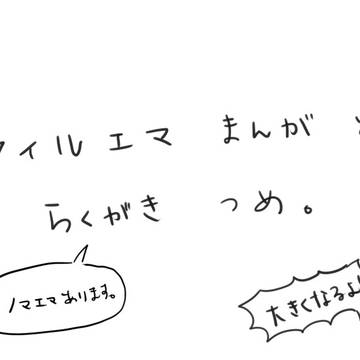 フィルエマ まんがと
らくがき つめ。
ノマエマあります。
大きくなるよ!